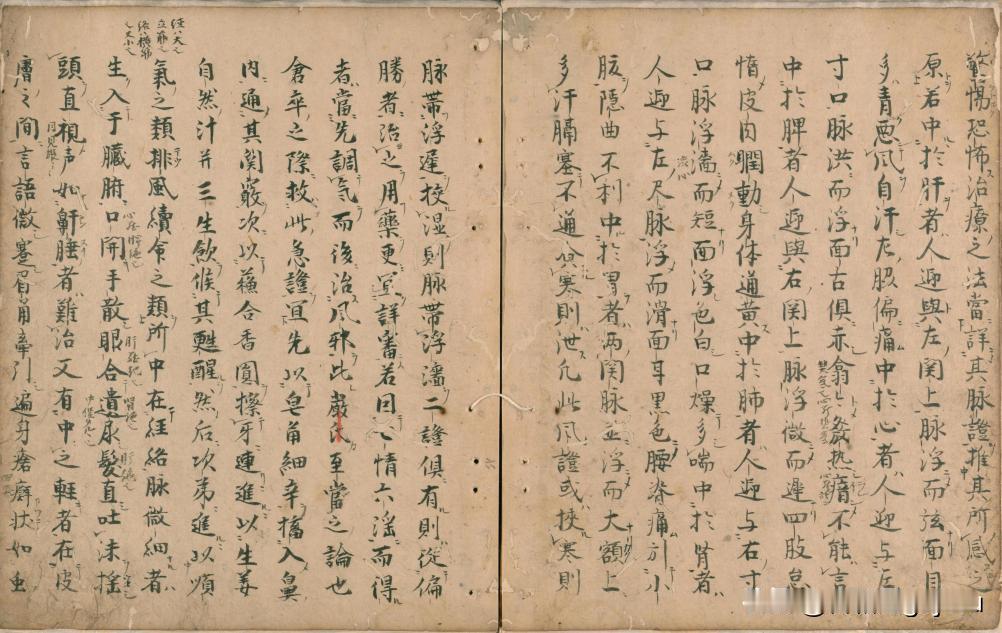 驚惕恐怖治療之法當詳其脉證推其所感之
原若中於肝者人迎與左関上脉浮而弦面目
多青悪風自汗左脇偏痛中於心者人迎与左
寸口脉洪而浮面舌俱赤翕〻發熱瘖不能言
中於脾者人迎與右関上脉浮微而遲四肢怠
惰皮肉瞤動身体通黄中於肺者人迎与右寸
口脉浮濇而短面浮色白口燥多喘中於腎者
人迎与左尺脉浮而滑面耳黒色腰脊痛引小
腹隱曲不利中於胃者両関脉並浮而大額上
多汗膈塞不通食寒則泄凡此風證或挾寒則
脉帶浮遲挍湿則脉帶浮濇二證俱有則從偏
勝者治之用藥更宜詳審若因七情六淫而得
者當先調氣而後治風邪此嚴氏至當之論也
倉卒之際救此急證宜先以皂角細辛搐入鼻
内通其関竅次以蘓合香圓擦牙連進以生姜
自然汁并三生飲候其甦醒然后次弟進以順
氣之類排風續命之類所中在経絡脉微細者
生入于臓腑口開手散眼合遺尿髮直吐沫揺
頭直視声如鼾睡者難治又有中之軽者在皮
膚之間言語微蹇眉角牽引遍身瘡癬状如虫